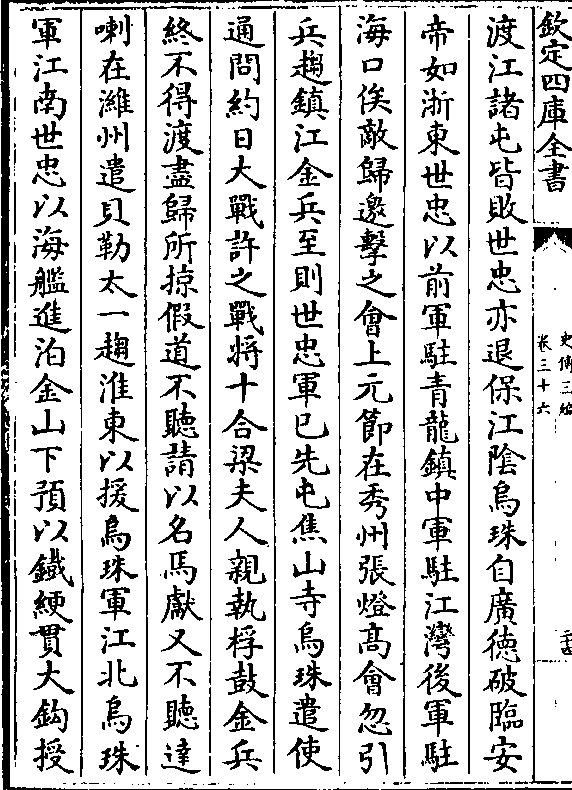 欽定四庫全書
史傳三編
卷三十六
渡江諸屯皆敗世忠亦退保江陰烏珠自廣德破臨安
帝如浙東世忠以前軍駐青龍鎮中軍駐江灣後軍駐
海口俟敵歸邀擊之會上元節在秀州張燈髙會忽引
兵趨鎮江金兵至則世忠軍已先屯焦山寺烏珠遣使
通問約日大戰許之戰將十合梁夫人親執桴鼓金兵
終不得渡盡歸所掠假道不聽請以名馬獻又不聽達
喇在濰州遣貝勒太一趨淮東以援烏珠軍江北烏珠
軍江南世忠以海艦進泊金山下預以鐵綆貫大鈎授